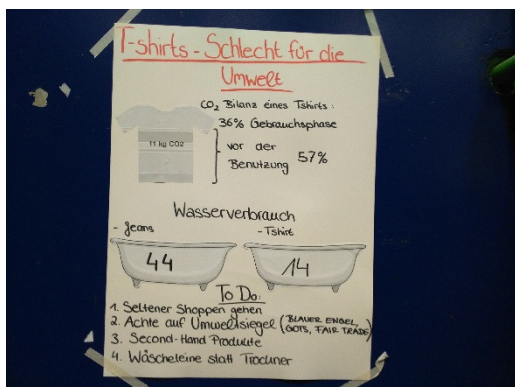 T-shirts - Schlecht für die
Umwelt
CO2 Bilanz eines Tshirts:
36% Gebrauchsphase
11 kg CO2
vor der
Benutzung 57%
Wasserverbrauch
- Jeans
- Tshirt
44
14
To Do:
1. Seltener Shoppen gehen
2. Achte auf Umweltsiegel (BLAUER ENGEL,
GOTS, FAIR TRADE)
3. Second-Hand Produkte
4. Wäscheleine statt Trockner